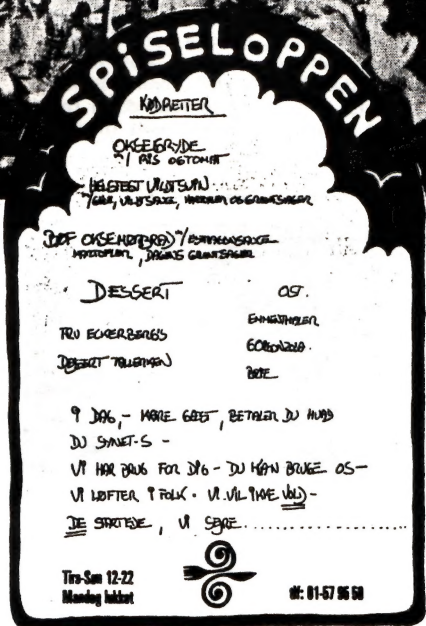 SPISELOPPEN
KØDRETTER
OKSEGRYDE
M/ RIS OG TOMAT
HELSTEGT VILDTSVIN
BØF OKSEMØRBRAD M/ ESTRAGONSAUCE
KARTOFLER, DAGENS GRØNTSAGER
DESSERT
FRU ECKERBERG'S
DESSERT TALLERKEN
OST.
EMMENTHALER
GORGONZOLA.
BRIE
I DAG,- KÆRE GÆST, BETALER DU HVAD
DU SYNET-S -
VI HAR BRUG FOR DIG - DU KAN BRUGE OS-
VI LØFTER I FOLK. VI VIL IKKE VOLD-
DE STARTEDE, VI SEJRE..................
Tirs-Søn 12-22
Mandag lukket
tlf: 01-57 95 58